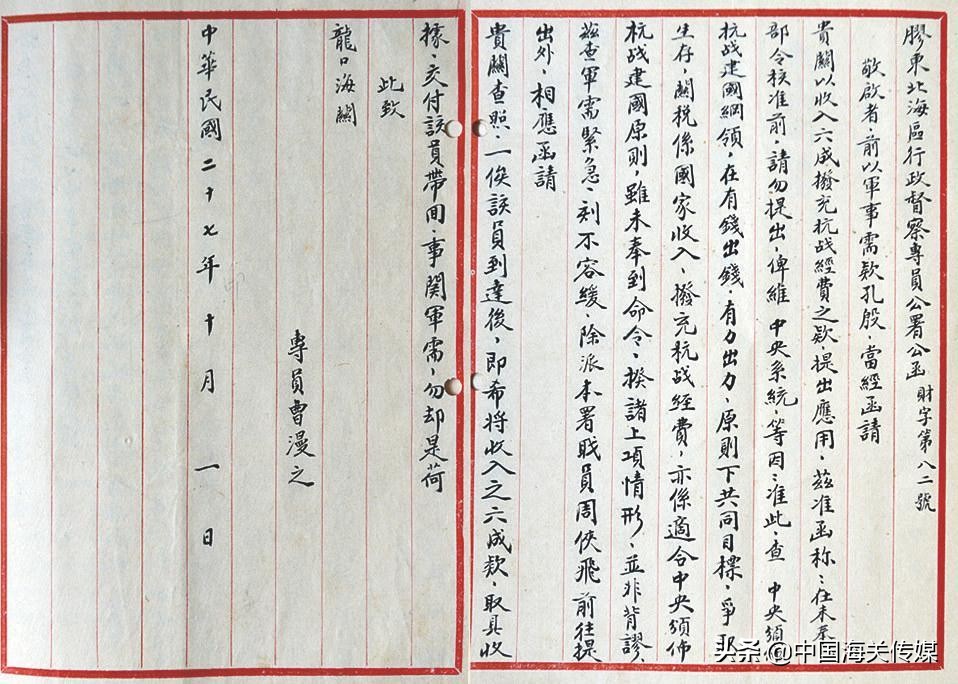 膠東北海區行政督察專員公署公函 財字第八二號
敬啟者，前以軍事需款孔殷，當經函請
貴關以收入六成撥充抗战經費之款，提出應用，茲准函称：在未奉
部令核准前，請勿提出，俾維 中央系統，等因：准此，查 中央頒佈
抗战建國綱領，在有錢出錢，有力出力，原則下共同目標，爭取
生存，關稅係國家收入，撥充抗战经費，亦係適合中央頒佈
抗战建國原則，雖未奉到命令，揆諸上項情形，並非背謬
茲查軍需緊急，刻不容緩，除派本署職員周俠飛前往提
出外，相應函請
貴關查照，一俟該員到達後，即希將收入之六成款，取具收
據，交付該員帶回，事関軍需，勿却是荷
此致
龍口海關
專員曹漫之
中華民國二十七年十月一日
头条@中国海关传媒